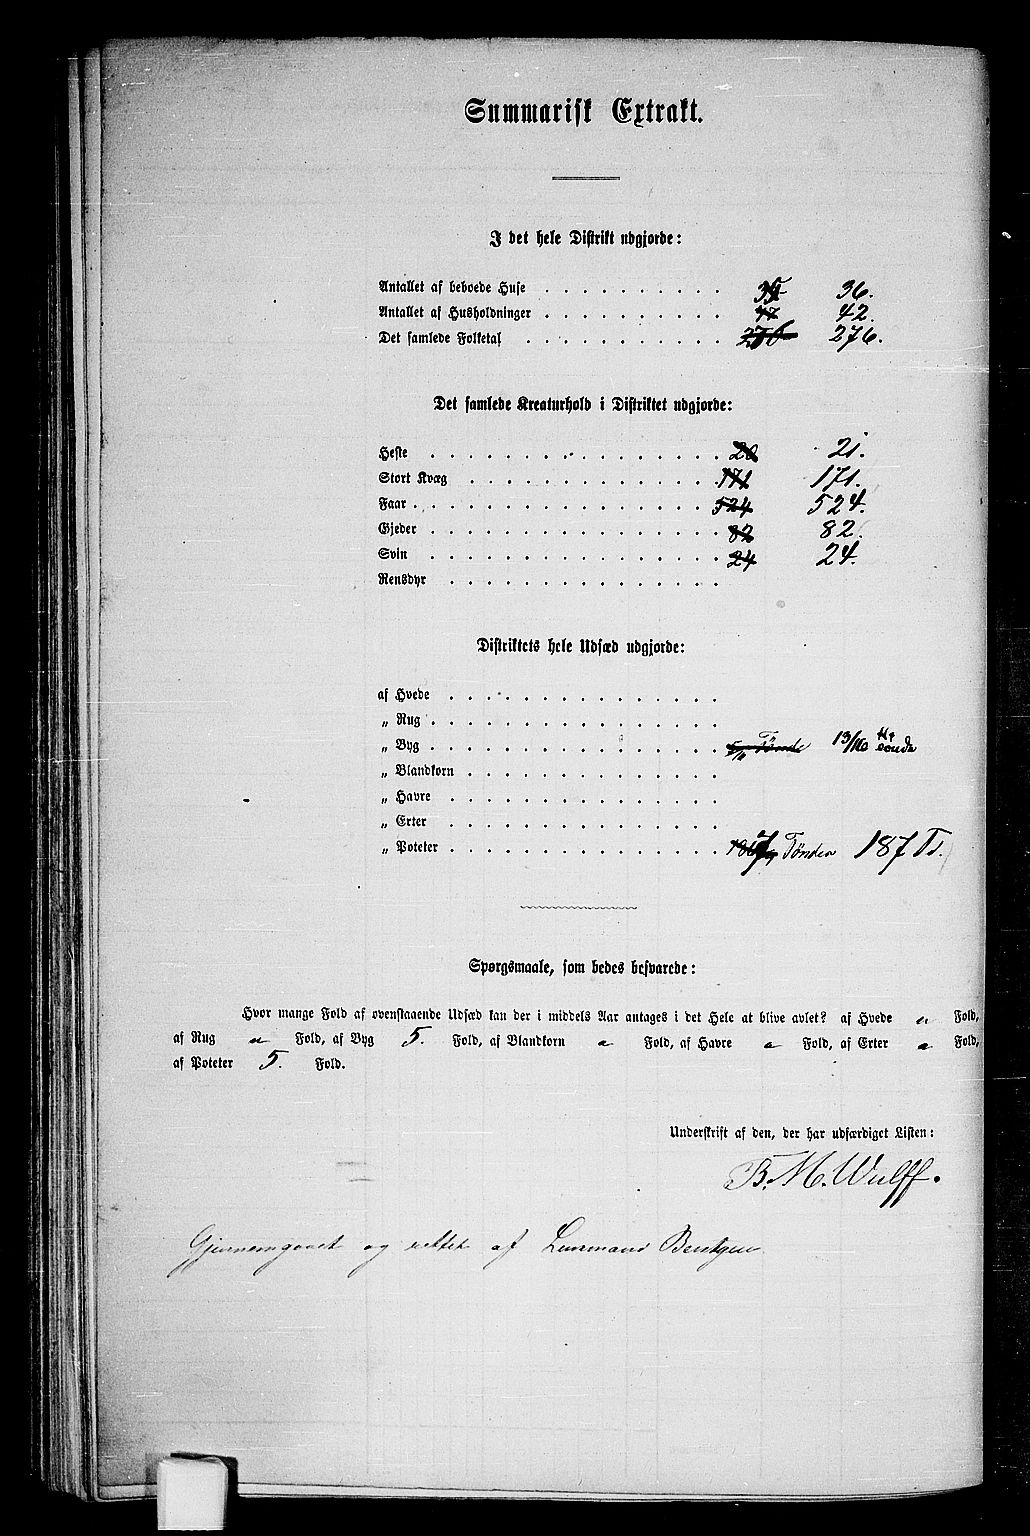 Summarisk Extrakt.
I det hele Distrikt udgjorde:
Antallet af beboede Huse . . . . . . . . . . 36.
Antallet af Husholdninger . . . . . . . . . . 42.
Det samlede Folketal . . . . . . . . . . . 276 276.
Det samlede Kreaturhold i Distriktet udgjorde:
Heste . . . . . . . . . . . . . . . . 20 21.
Stort Kvæg . . . . . . . . . . . . . . 171 171.
Faar . . . . . . . . . . . . . . . . . 524 524.
Gjeder . . . . . . . . . . . . . . . 82 82.
Svin . . . . . . . . . . . . . . . . 24 24.
Rensdyr . . . . . . . . . . . . . . .
Distriktets hele Udsæd udgjorde:
af Hvede . . . . . . . . . . . . . . .
„ Rug . . . . . . . . . . . . . . . .
„ Byg . . . . . . . . . . . . . . . . Tønde 13/16
„ Blandkorn . . . . . . . . . . . . . .
„ Havre . . . . . . . . . . . . . . .
„ Erter . . . . . . . . . . . . . . .
„ Poteter . . . . . . . . . . . . . . . Tønder 187 Tr.
Spørgsmaale, som bedes besvarede:
Hvor mange Fold af ovenstaaende Udsæd kan der i middels Aar antages i det Hele at blive avlet? af Hvede " Fold,
af Rug " Fold, af Byg 5. Fold, af Blandkorn " Fold, af Havre " Fold, af Erter " Fold,
af Poteter 5. Fold.
Underskrift af den, der har udfærdiget Listen:
B. M. Wulff.
Gjennemgaaet og rettet af Lensmand Bentzen